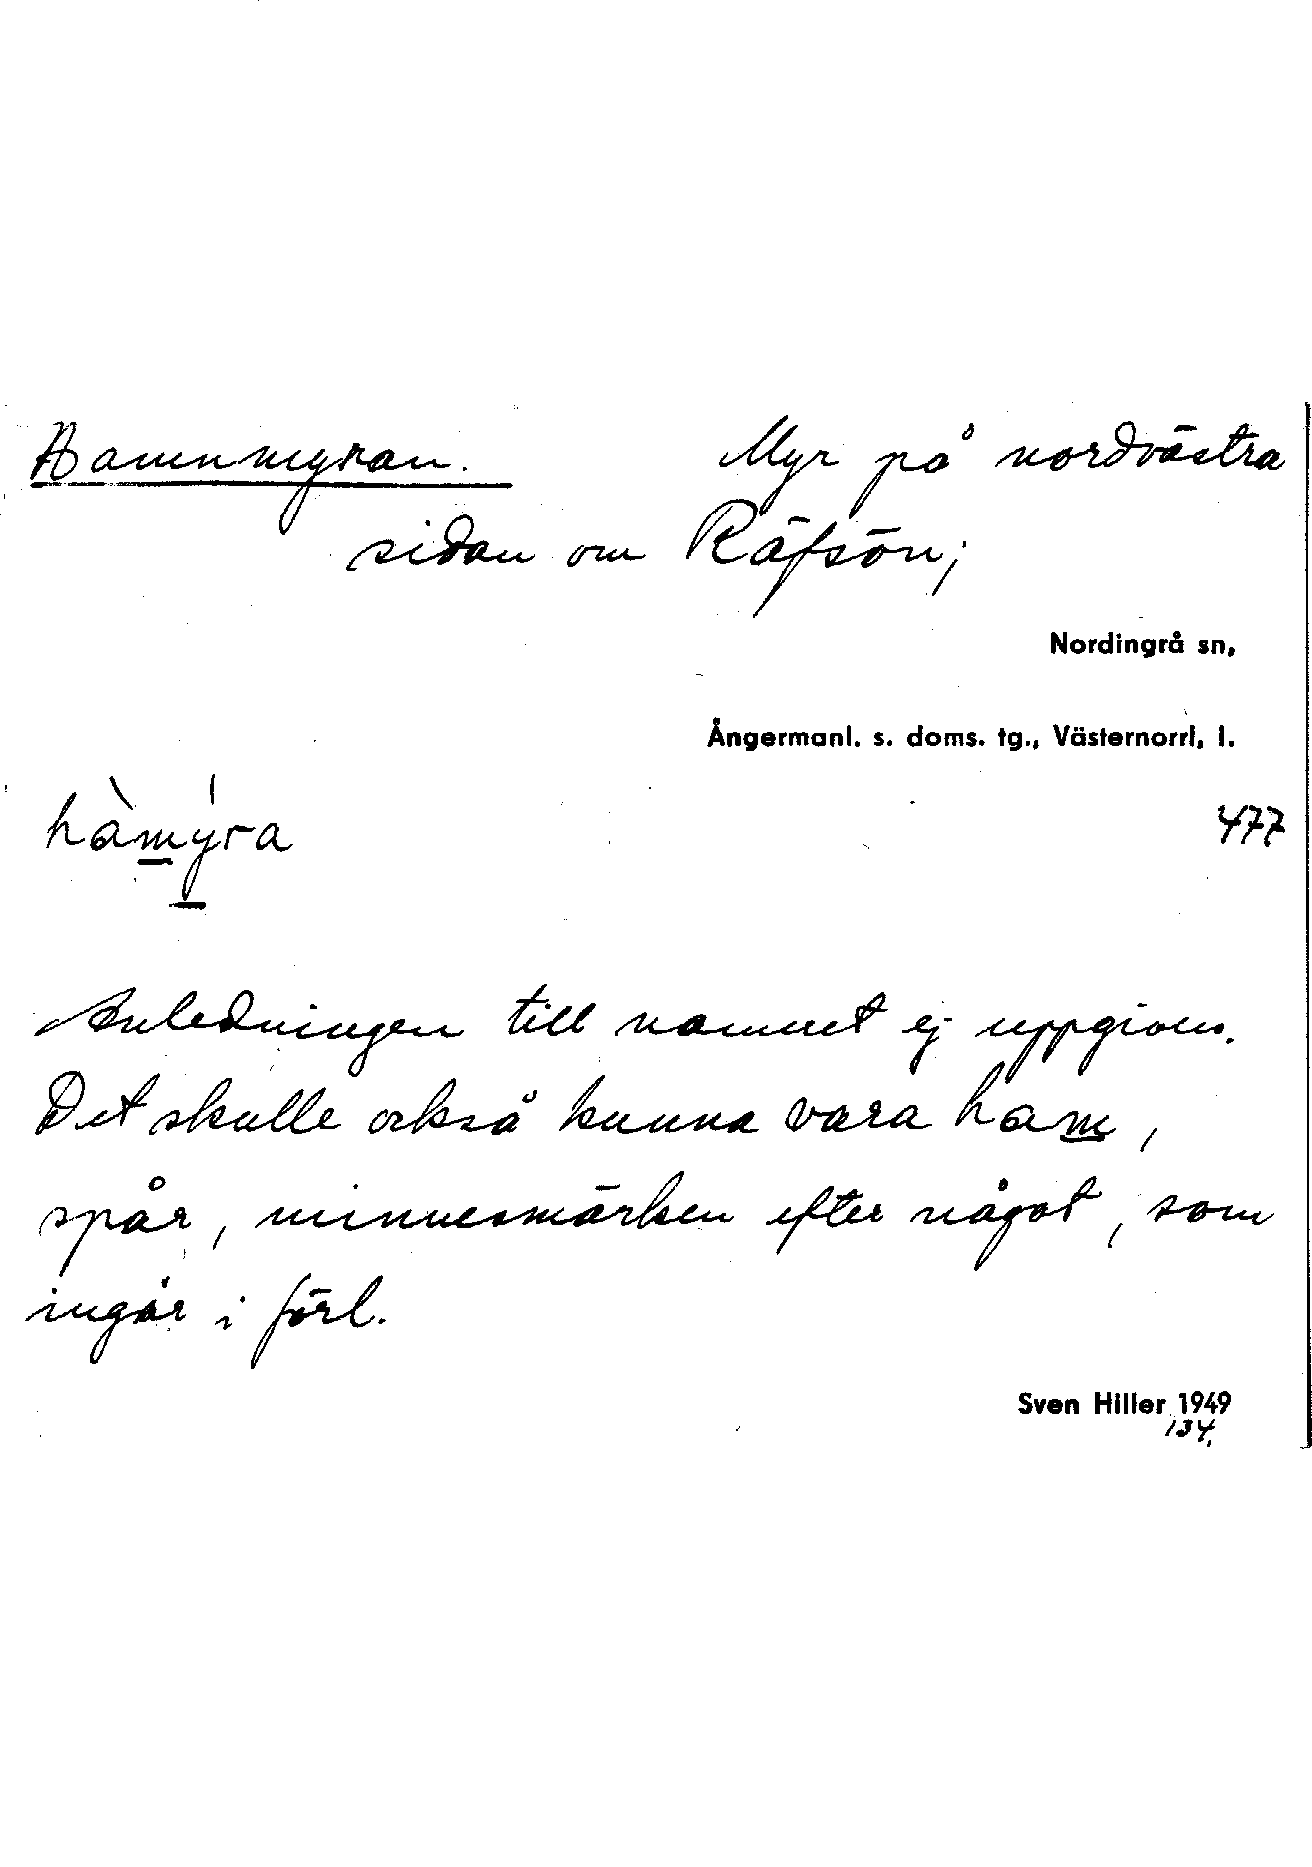 Hamnmyran. Myr på nordvästra
sidan om Räfsön;
Nordingrå sn,
Ångermanl. s. doms. tg., Västernorrl. l.
hàmýra 477
Anledningen till namnet ej uppgiven.
Det skulle också kunna vara ham,
spår, minnesmärken efter något, som
ingår i förl.
Sven Hiller 1949
134.